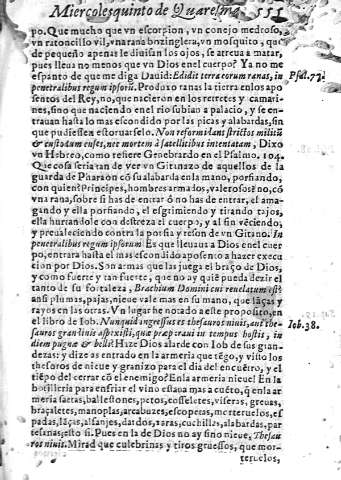 Miercoles quinto de Quaresma. 551
po. Que mucho que vn escorpion, vn conejo medroso,
vn ratoncillo vil, vna rana bozinglera, vn mosquito, que
de pequeño apenas le diuisan los ojos, se atreua a matar,
pues lleua no menos que vn Dios en el cuerpo? Ya no me
espanto de que me diga Dauid: Edidit terra eorum ranas, in
Psal. 77.
penetralibus regum ipsorũ. Produxo ranas la tierra en los apo
sentos del Rey, no, que nacieron en los retretes y camari-
nes, sino que naciendo en el rio subian a palacio, y se en-
trauan hasta lo mas escondido por las picas y alabardas, sin
que pudiessen estoruarselo. Non reformidans strictos militũ
& custodum enses, net mortem à satellitibus intentatam, Dixo
vn Hebreo, como refiere Genebrardo en el Psalmo, 104.
Que cosa seria tan de ver vn Gitanazo de aquellos de la
guarda de Pharaon cõ su alabarda en la mano, porfiando,
con quien? Principes, hombres armados, valerosos? no, cõ
vna rana, sobre si has de entrar ô no has de entrar, el ama-
gando y ella porfiando, el esgrimiendo y tirando tajos,
ella hurtandole con destreza el cuerpo, y al fin vẽciendo,
y preualeciendo contra la porfia y teson de vn Gitano. In
penetralibus regum ipsorum Es que lleuaua a Dios en el cuer
po, entrara hasta el mas escondido aposento a hazer execu
cion por Dios. Son armas que las juega el braço de Dios,
y como fuerte y tan fuerte, que no ay quiẽ pueda dezir el
tanto de su fortaleza, Brachium Domini cui reuelatum est?
aun plumas, pajas, nieue vale mas en su mano, que lãças y
rayos en las otras. Vn lugar he notado a este proposito, en
el libro de Iob. Nunquid ingressus es thesauros niuis, aut the-
Iob. 38.
sauros grandinis aspexisti, quæ præparaui in tempus hostis, in
diem pugnæ & belli? Haze Dios alarde con Iob de sus gran-
dezas: y dize as entrado en la armeria que tẽgo, y visto los
thesoros de nieue y granizo para el dia del encuẽtro, y el
tiẽpo del cerrar cõ el enemigo? En la armeria nieue? En la
botilleria para enfriar el vino estaua mas a cuẽto, q̃ en la ar
meria saetas, ballestones, petos, cosseletes, viseras, greuas,
braçaletes, manoplas, arcabuzes, escopetas, morteruelos, es
padas, lãças, alfanjes, dardos, taras, cuchillas, alabardas, par
tesanas, esto si. Pues en la de Dios no ay sino nieue, Thesau
ros niuis. Mirad que culebrinas y tiros gruessos, que mor-
teruelos,